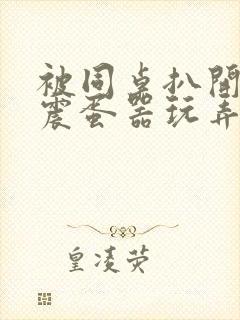 被同桌扒開
震蛋器玩弄
皇凌荧